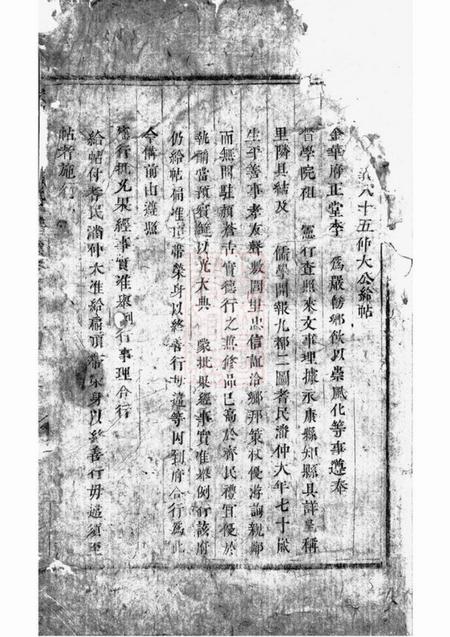 八十五仲大公給帖
金華府正堂李 為嚴飭鄉飲以崇風化等事遵奉
督學院祖 憲行查照來文事理據永康縣知縣具詳呈稱
里隣具結及 儒學開報九都二圖耆民潘仲大年七十歲
生平善事孝友聲數閭里忠信誼洽鄉邦策杖優游詢親鄰
而無間駐顏蒼古實德行之兼修品已高於齊民禮宜優於
執爵當預賓筵以光大典 蒙批果經事實准舉例行該府
仍給帖匾准頂帶榮身以終善行毋違等因到府合行為此
今備前由遵照
憲行批允果經事實准舉例行事理合行
給帖付耆民潘仲大准給扁頂帶榮身以終善行毋違須至
帖者施行